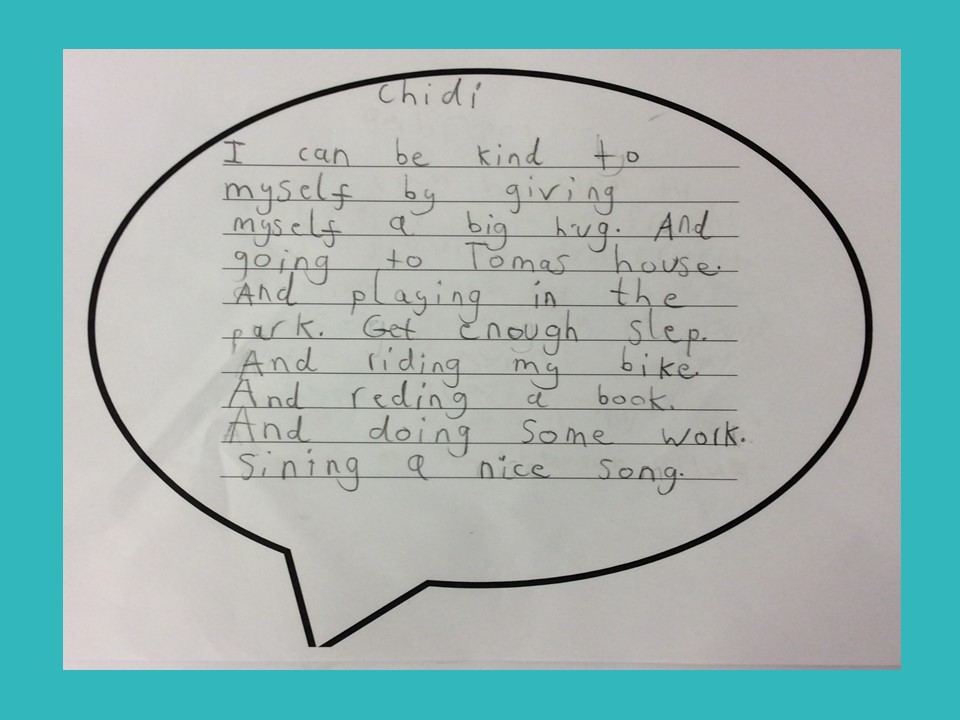 Chidi
I can be kind to
myself by giving
myself a big hug. And
going to Tomas house.
And playing in the
park. Get enough slep.
And riding my bike.
And reding a book.
And doing some work.
Sining a nice song.